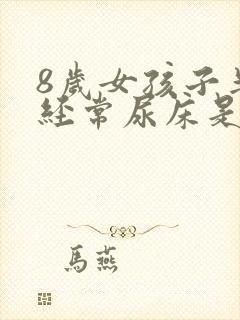 8歲女孩子
經常尿床是
馬燕